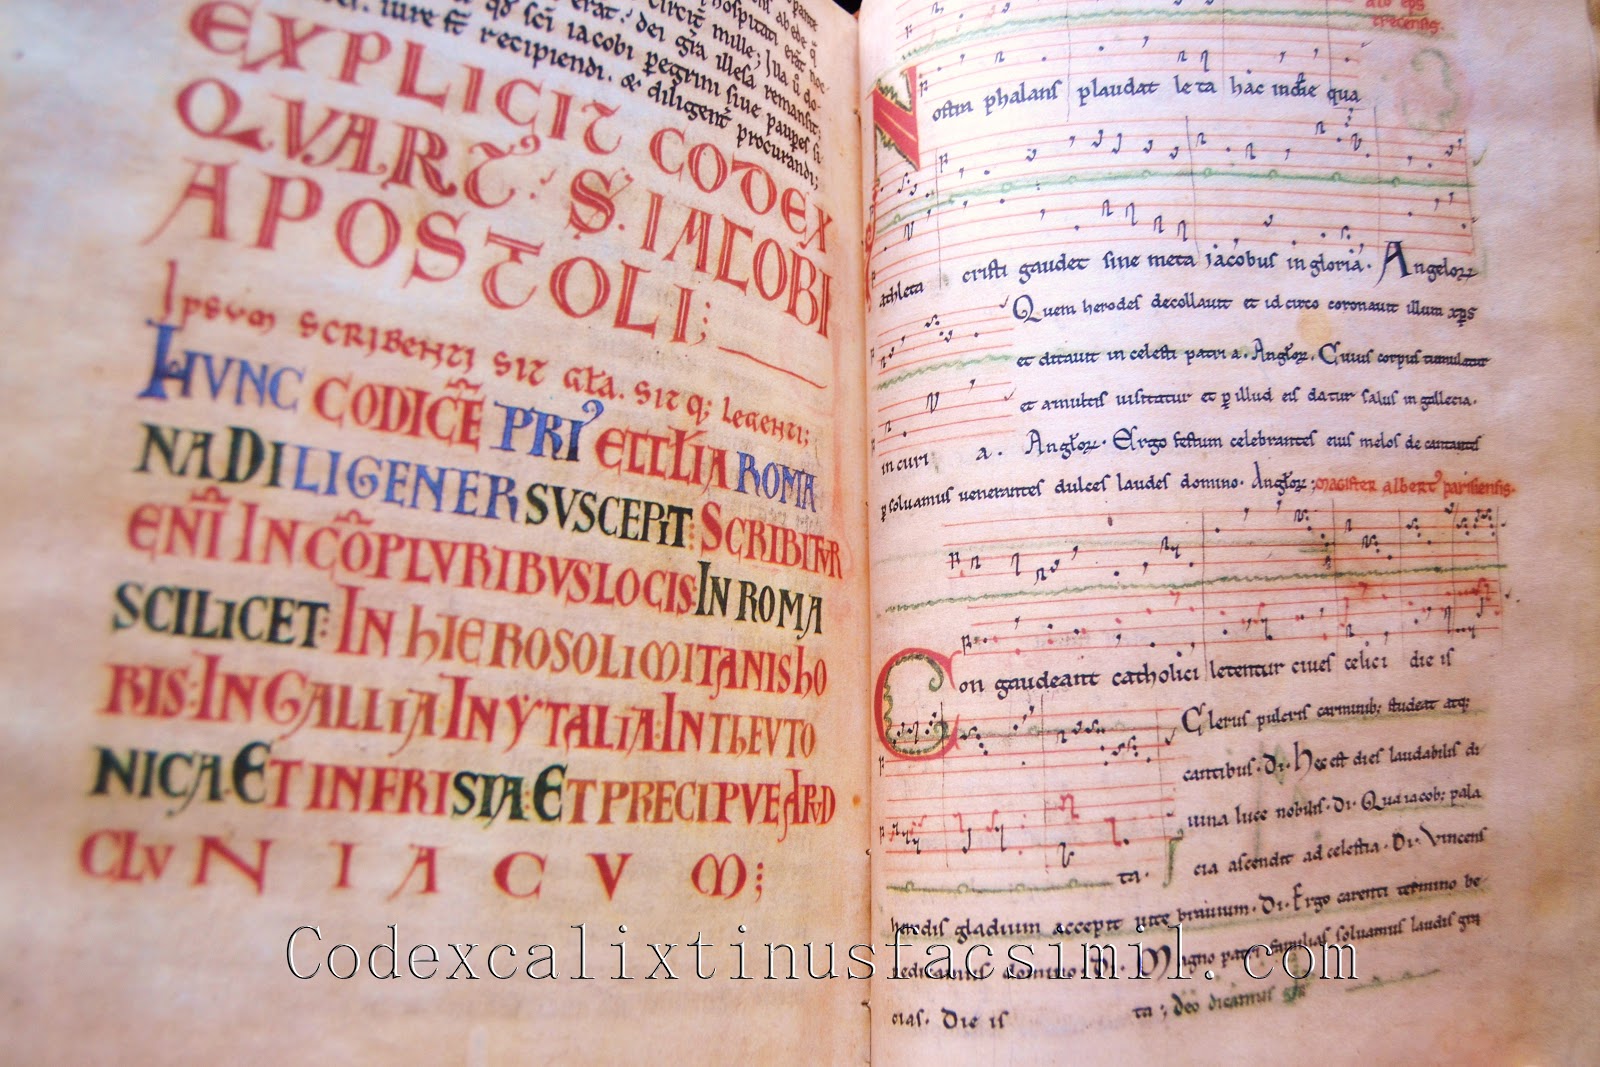 hospitati erat noc
erat. dei gra illesa remansit;
qd sci iacobi pegrini siue paupes si
iure st recipiendi. & diligent procurandi;
EXPLICIT CODEX
QUART' S. IACOBI
APOSTOLI;
Ipsum scribenti sit gla. sit q; legenti;
HUNC CODICE PRI' ECCLIA ROMA
NA DILIGENER SUSCEPIT: SCRIBITUR
ENI IN COPLURIBUS LOCIS: IN ROMA
SCILICET: IN HIEROSOLIMITANIS HO
RIS: IN GALLIA IN YTALIA: IN THEUTO
NICA: ET IN FRISIA: ET PRECIPUE APUD
CLUNIACUM;
eps
trecensis.
Nostra phalans plaudat leta hac in die qua
athleta cristi gaudet sine meta jacobus in gloria. Angelor
Quem herodes decollauit et id circo coronauit illum xps
et ditauit in celesti patri a. Anglor. Cuius corpus tumulatur
et a multis uisitatur et p illud eis datur salus in gallecia.
in curi a. Anglor. Ergo festum celebrantes eius melos decantantes
psoluamus uenerantes dulces laudes domino. Anglor; magister albert' parisiensis.
Congaudeant catholici letentur ciues celici die is
Clerus pulcris carminib; studeat atq;
cantibus. Di. Hec est dies laudabilis di
uina luce nobilis. Di. Qua iacob; pala
ta. cia ascendit ad celestia. Di. Vincens
herodis gladium accepit uite brauium. Di. Ergo carenti termino be
nedicamus domino. Di. Magno patri familias soluamus laudis gra
cias. Die is ta; deo dicamus gra
Codexcalixtinusfacsimil.com